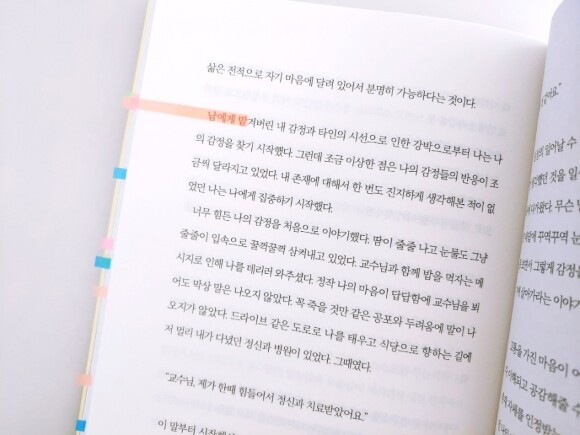 삶은 전적으로 자기 마음에 달려 있어서 분명히 가능하다는 것이다.
남에게 맡겨버린 내 감정과 타인의 시선으로 인한 강박으로부터 나는 나
의 감정을 찾기 시작했다. 그런데 조금 이상한 점은 나의 감정들의 반응이 조
금씩 달라지고 있었다. 내 존재에 대해서 한 번도 진지하게 생각해본 적이 없
었던 나는 나에게 집중하기 시작했다.
너무 힘든 나의 감정을 처음으로 이야기했다. 땀이 줄줄 나고 눈물도 그냥
줄줄이 입속으로 꿀꺽꿀꺽 삼켜내고 있었다. 교수님과 함께 밥을 먹자는 메
시지로 인해 나를 데리러 와주셨다. 정작 나의 마음이 답답함에 교수님을 뵈
어도 막상 말은 나오지 않았다. 꼭 죽을 것만 같은 공포와 두려움에 말이 나
오지가 않았다. 드라이브 같은 도로로 나를 태우고 식당으로 향하는 길에
저 멀리 내가 다녔던 정신과 병원이 있었다. 그때였다.
"교수님, 제가 한때 힘들어서 정신과 치료받았어요."
이 말부터 시작해서
어요."
일어날 수
했던 것을 일
지가 왔다. 무슨 말
꾸역꾸역 눈
면서 그렇게 감정
살아가라는 이야기
폭을 가진 마음이 어
공감해줄 수
자체를 인정받는